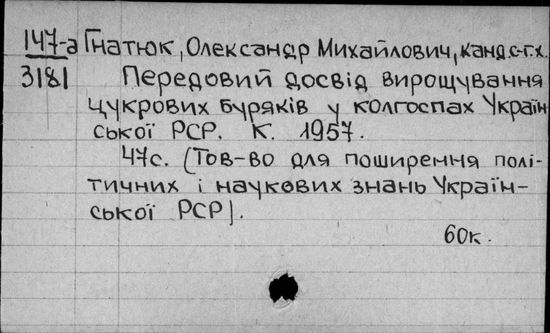 147-а Гнатюк, Олександр Михайлович, канд.с-г.х.
3181 Передовий досвід вирощування
цукрових буряків у колгоспах Україн
ської РСР. К. 1957.
47с. (Тов-во для поширення полі-
тичних і наукових знань Україн-
ської РСР).
60к.